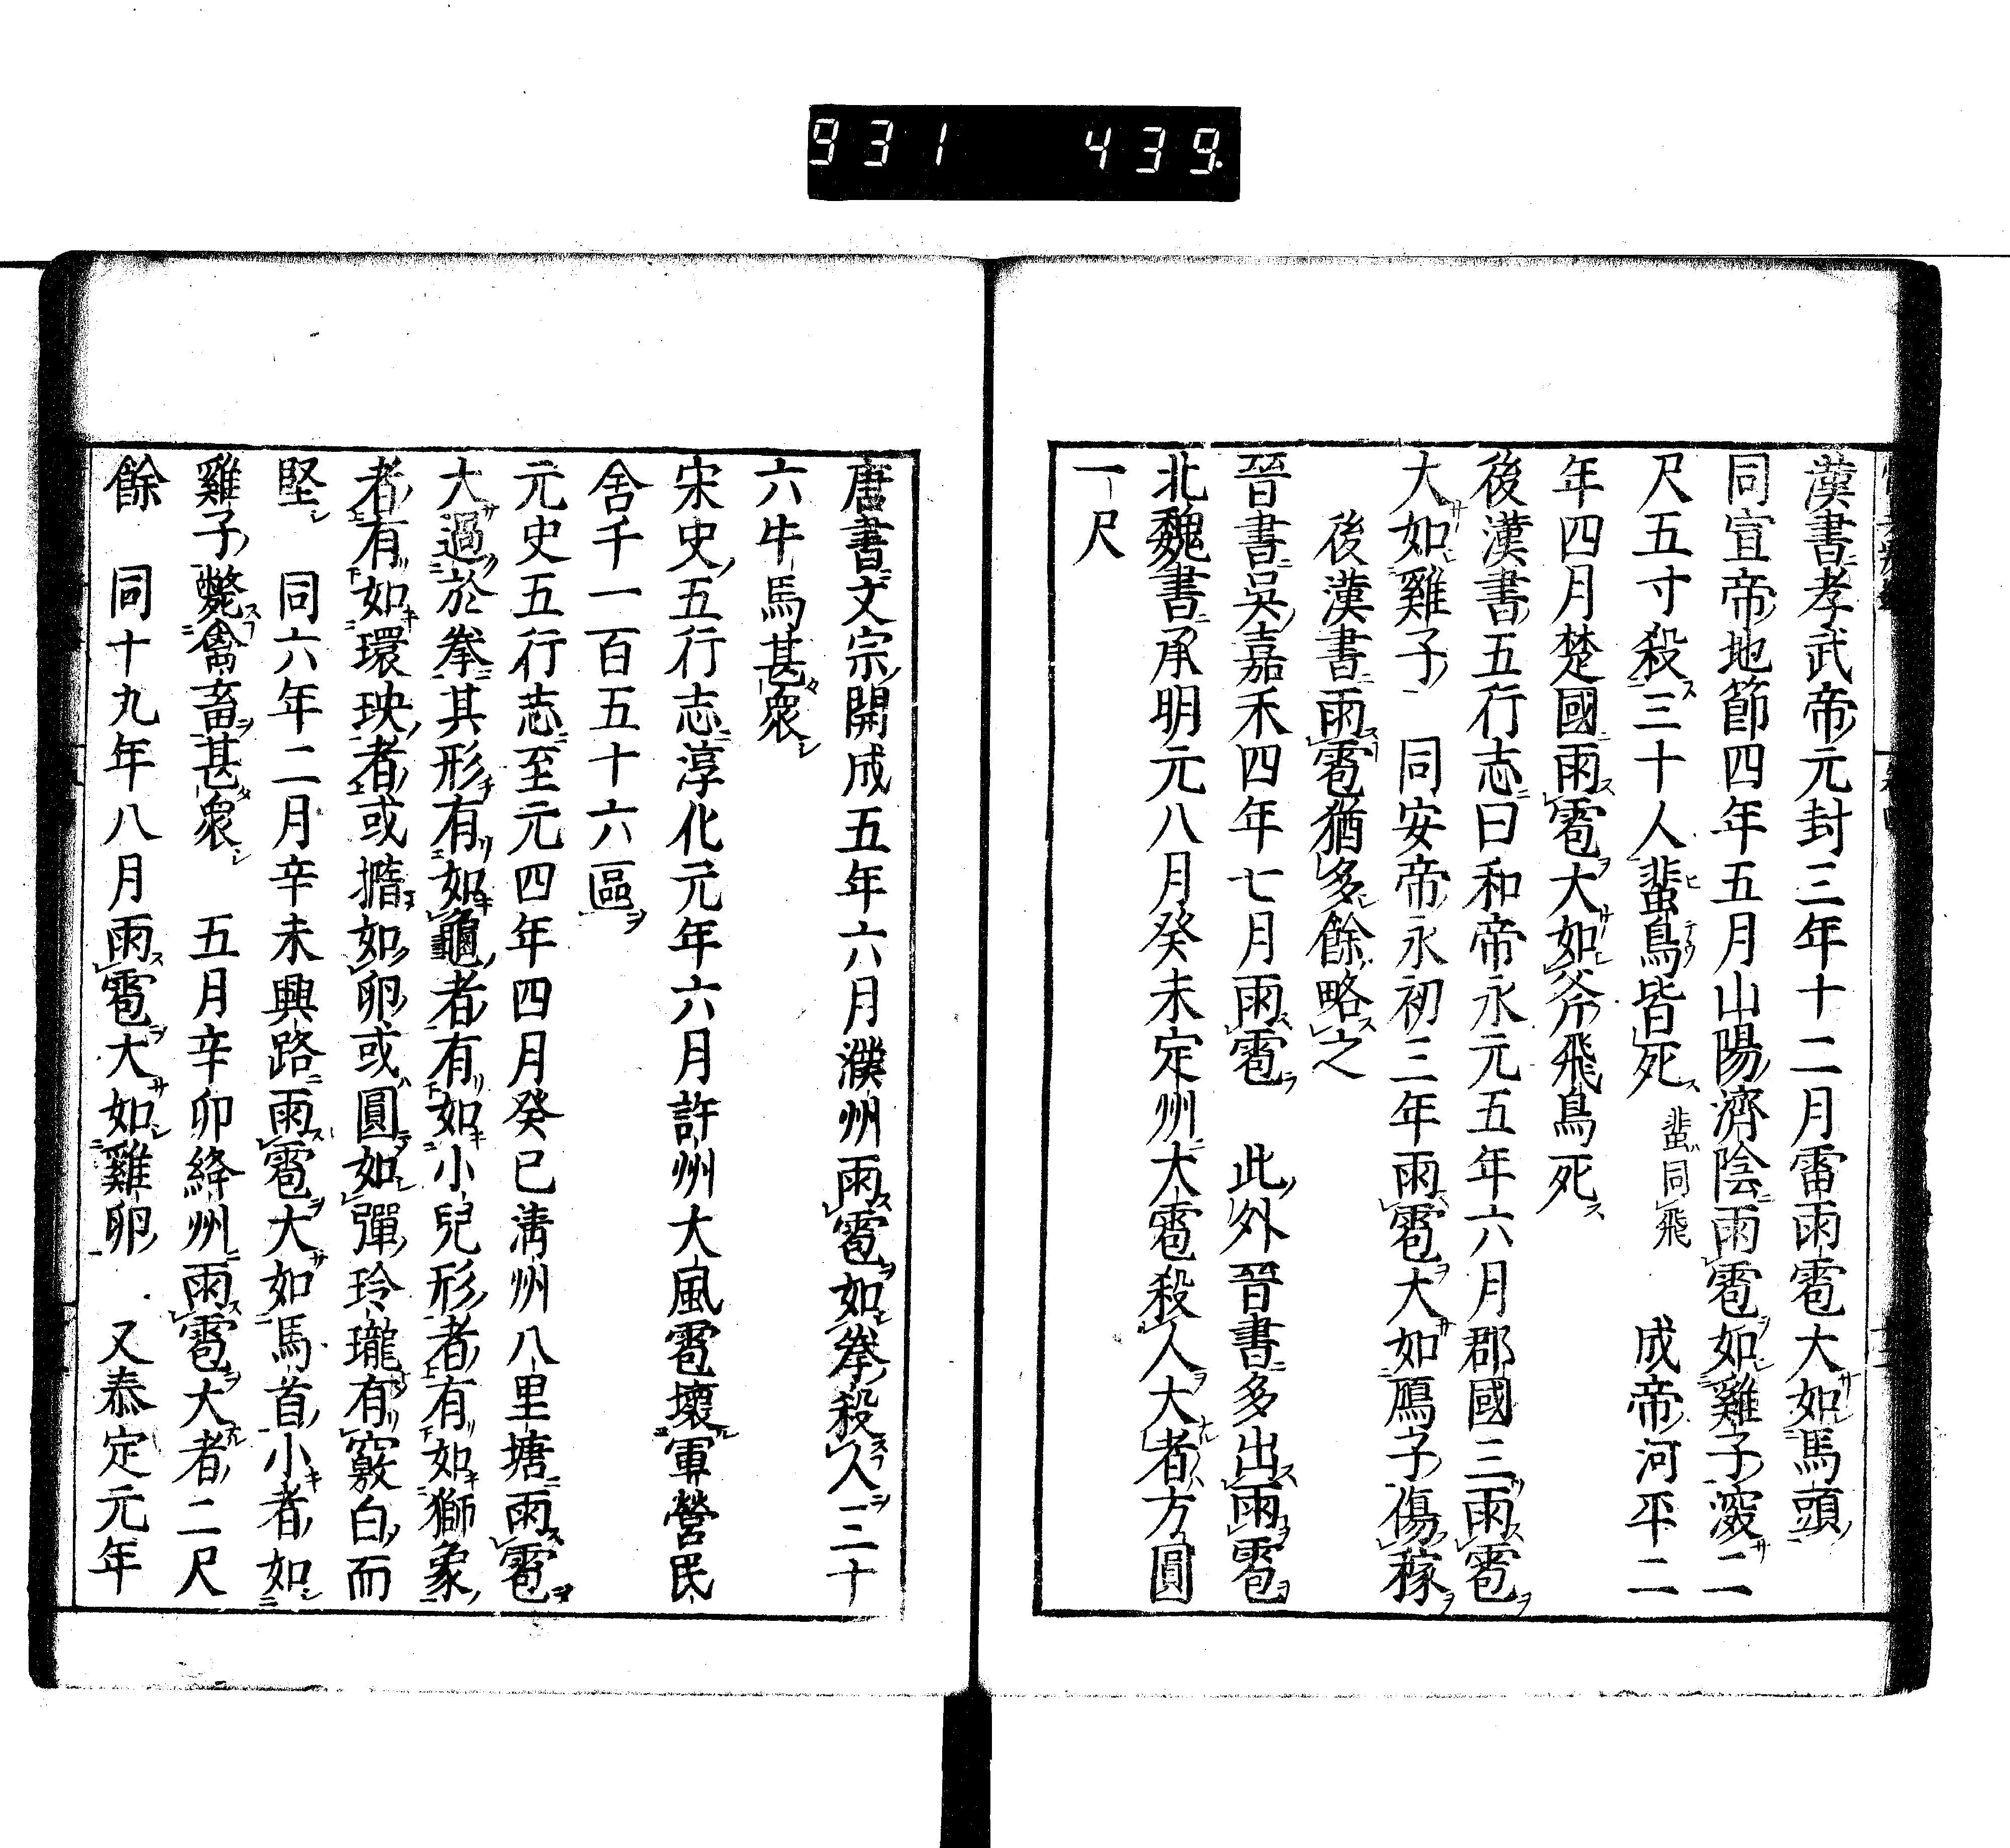 931 439.
漢書孝武帝元封三年十二月雷雨雹大如馬頭
同宣帝地節四年五月山陽濟陰雨雹如雞子深二
尺五寸殺三十人蜚鳥皆死 蜚同飛 成帝河平二
年四月楚國雨雹大如斧飛鳥死
後漢書五行志曰和帝永元五年六月郡國三雨雹
大如雞子 同安帝永初三年雨雹大如鴈子傷稼
後漢書雨雹猶多餘略之
晉書吳嘉禾四年七月雨雹 此外晉書多出雨雹
北魏書承明元八月癸未定州大雹殺人大者方圓
一尺
唐書文宗開成五年六月濮州雨雹如拳殺人三十
六牛馬甚衆
宋史五行志淳化元年六月許州大風雹壞軍營民
舍千一百五十六區
元史五行志至元四年四月癸巳淸州八里塘雨雹
大過於拳其形有如龜者有如小兒形者有如獅象
者有如環玦者或撱如卵或圓如彈玲瓏有竅白而
堅 同六年二月辛未興路雨雹大如馬首小者如
雞子斃禽畜甚衆 五月辛卯絳州雨雹大者二尺
餘 同十九年八月雨雹大如雞卵 又泰定元年